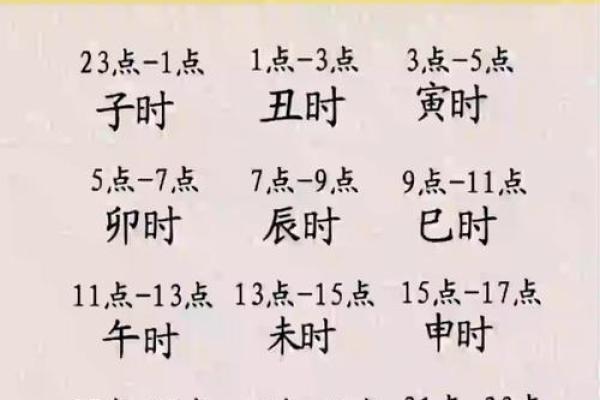 23点-1点 1点-3点 3点-5点
子时 丑时 寅时
5点-7点 7点-9点 9点-11点
卯时 辰时 巳时
11点-13点 13点-15点 15点-17点
午时 未时 申时